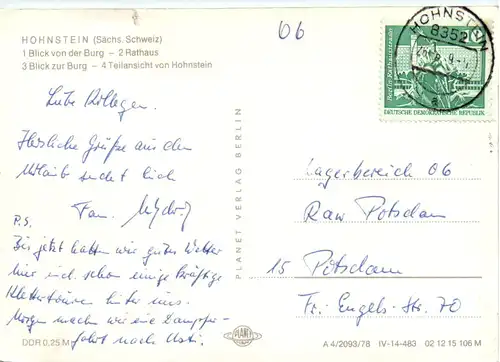 HOHNSTEIN (Sächs. Schweiz)
1 Blick von der Burg – 2 Rathaus
3 Blick zur Burg – 4 Teilansicht von Hohnstein
06
HOHNSTEIN
8352
a
Berlin Rathausstraße
DEUTSCHE DEMOKRATISCHE REPUBLIK
Liebe Kollegen.
Herzliche Grüße aus dem
Urlaub sendet Euch
Fam.
P.S.
Bis jetzt hatten wir gutes Wetter
hier und schon einige kräftige
Klettertouren hinter uns.
Morgen machen wir eine Dampfer-
fahrt nach Usti.
PLANET VERLAG BERLIN
Lagerbereich 06
Raw Potsdam
15 Potsdam
Fr. Engels-Str. 70
DDR 0,25 M
PLANET
A 4/2093/78 IV-14-483 02 12 15 106 M